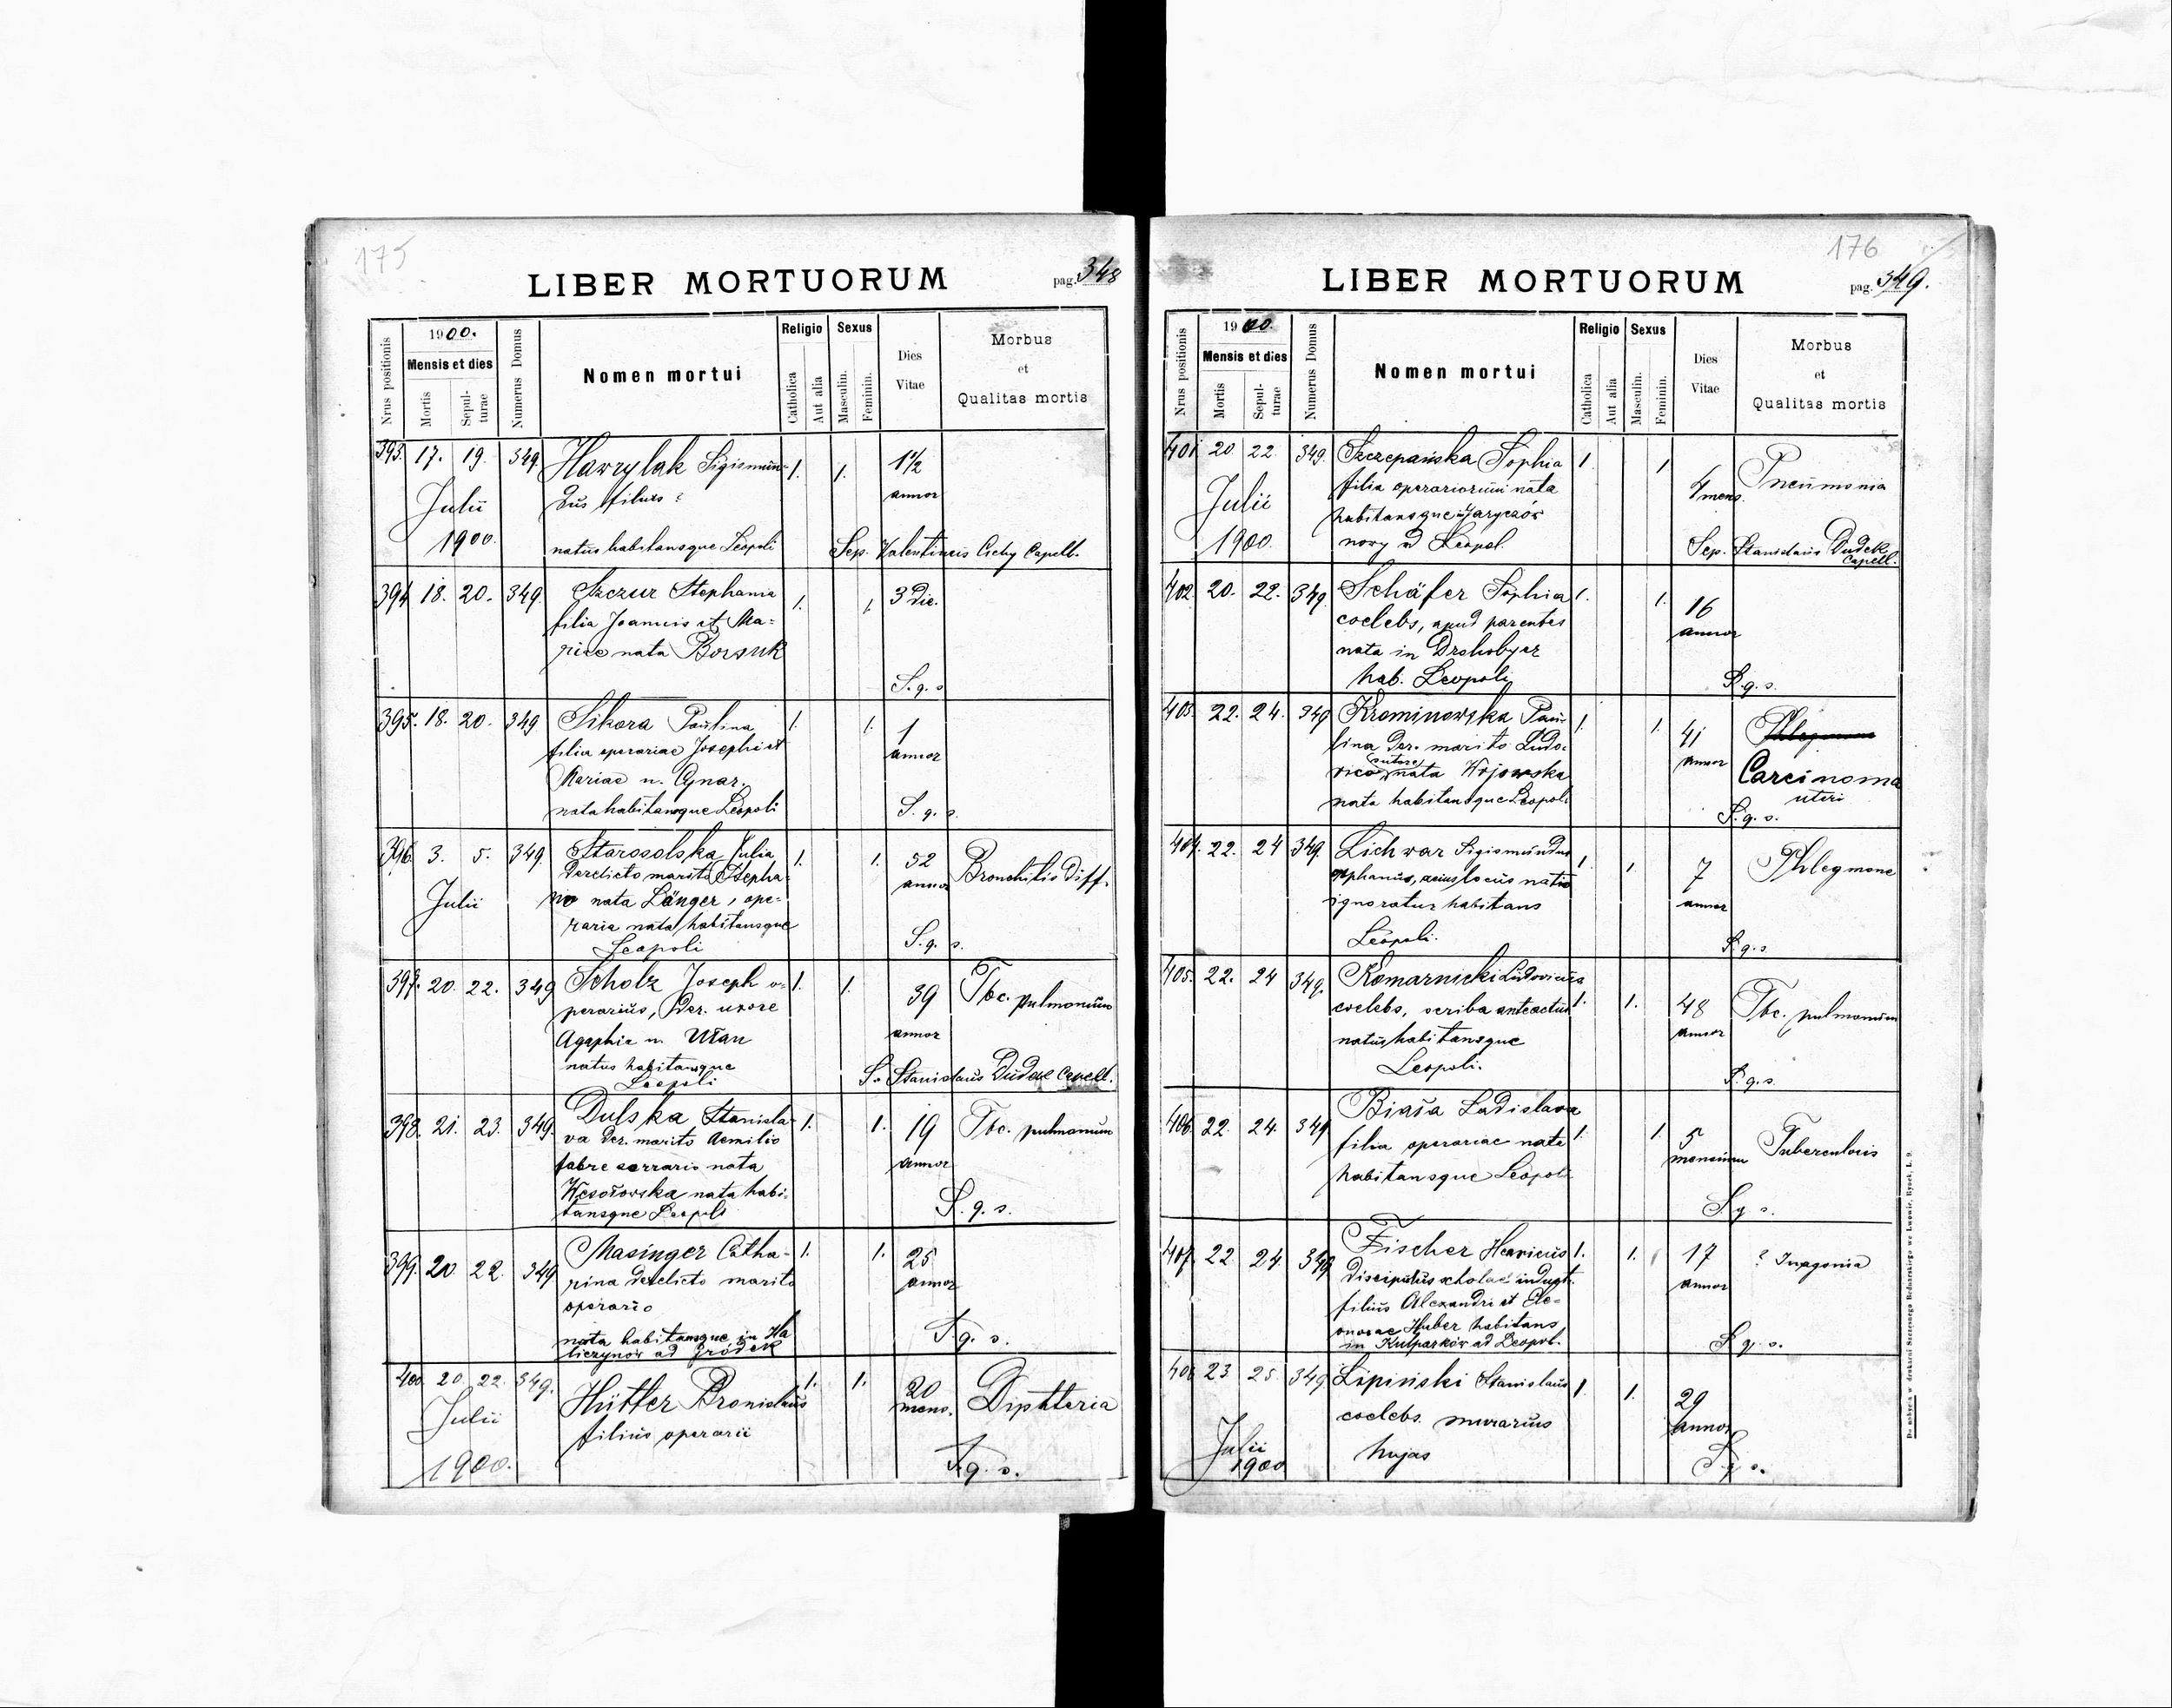 175
LIBER MORTUORUM
pag. 348
Nrus positionis
1900.
Mensis et dies
Mortis
Sepul-
turae
Numerus Domus
Nomen mortui
Religio
Catholica
Aut alia
Sexus
Masculin.
Feminin.
Dies
Vitae
Morbus
et
Qualitas mortis
393. 17. 19. 349. Hawrylak Sigismun= 1. 1. 1½
dus filius ? annor
Julii
1900. natus habitansque Leopoli Sep. Valentinus Cichy Capell.
394 18. 20. 349. Szczur Stephania 1. 1. 3 die.
filia Joannis et Ma=
riae nata Borsuk
S. q. s
395. 18. 20. 349 Sikora Paulina 1. 1. 1
filia operariae Josephi et annor
Mariae n. Gnar.
nata habitansque Leopoli S. q. s.
396. 3. 5. 349 Starosolska Julia 1. 1. 52 Bronchitis diff.
derelicto marito Stepha= annor
Julii no nata Länger, ope=
raria nata habitansque
Leopoli S. q. s.
397. 20. 22. 349 Scholz Joseph o= 1. 1. 39 Tbc. pulmonum
perarius, der. uxore annor
Agaphia n. Ułan
natus habitansque
Leopoli S. Stanislaus Dudek Capell.
398. 21. 23. 349. Dulska Stanisla- 1. 1. 19 Tbc. pulmonum
va der. marito Aemilio annor
fabre serrario nata
Wesołowska nata habi-
tansque Leopoli S. q. s.
399. 20 22. 349 Masinger Catha- 1. 1. 25
rina derelicto marito annor
operario
nata habitansque in Ha
liczynow ad Gródek S. q. s.
400. 20. 22. 349. Hütter Bronislaus 1. 1. 20 mens. Diphteria
Julii filius operarii
1900. S. q. s.
176
LIBER MORTUORUM
pag. 349.
Nrus positionis
1900.
Mensis et dies
Mortis
Sepul-
turae
Numerus Domus
Nomen mortui
Religio
Catholica
Aut alia
Sexus
Masculin.
Feminin.
Dies
Vitae
Morbus
et
Qualitas mortis
401 20 22. 349. Szczepańska Sophia 1. 1 4 mens. Pneumonia
filia operariorum nata
Julii habitansque Jaryczów
1900. nowy ad Leopol. Sep. Stanislaus Dudek
Capell.
402. 20. 22. 349. Schäfer Sophia 1. 1. 16
coelebs, apud parentes annor
nata in Drohobycz
hab. Leopoli S. q. s.
403. 22. 24. 349 Krominowska Pau- 1. 1. 41
lina der. marito Ludo- annor Carcinoma
vico sutore nata Wojowska uteri
nata habitansque Leopoli S. q. s.
404. 22. 24 349. Lichwar Sigismundus 1. 1. 7 Phlegmone
orphanus, cuius locus natio annor
ignoratur habitans
Leopoli. S. q. s
405. 22. 24 349. Komarnicki Ludovicus 1. 1. 48 Tbc. pulmonum
coelebs, scriba anteactus annor
natus habitansque
Leopoli. S. q. s.
406. 22. 24. 349 Biała Ladislava 1. 1. 5 Tuberculosis
filia operariae nata mensium
habitansque Leopoli
S q s.
407. 22 24. 349 Fischer Henricus 1. 1. 17 ? Inagonia
discipulus scholae indust. annor
filius Alexandri et Ele-
onorae Huber habitans
in Kulparków ad Leopol. S q. s.
408 23 25. 349 Lipiński Stanislaus 1. 1. 29
coelebs murarius annor
Julii hujas
1900 S q s.